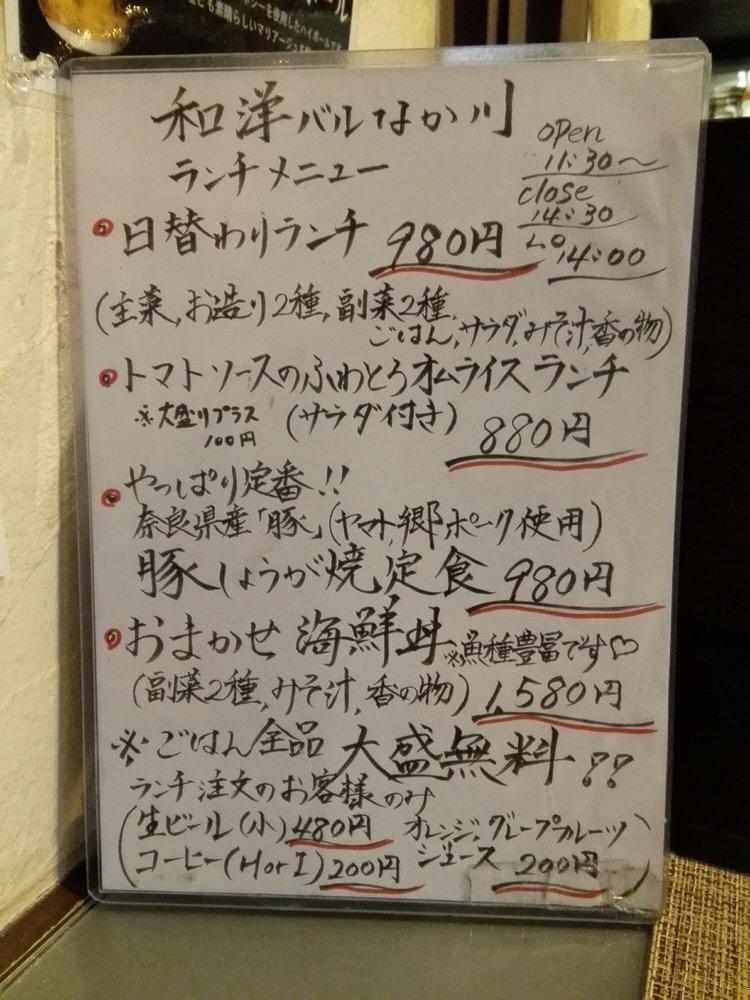 シーを使用したハイボールです
とも素晴らしいマリアージュ
和洋バルなか川
ランチメニュー
open
11:30〜
close
14:30
LO
14:00
日替わりランチ 980円
(主菜,お造り2種,副菜2種,
ごはん,サラダ,みそ汁,香の物)
トマトソースのふわとろオムライスランチ
※大盛りプラス
100円
(サラダ付き)
880円
やっぱり定番!!
奈良県産「豚」(ヤマト郷ポーク使用)
豚しょうが焼定食 980円
おまかせ海鮮丼 ※魚種豊富です♡
(副菜2種,みそ汁,香の物) 1,580円
※ごはん全品 大盛無料!!
ランチ注文のお客様のみ
(生ビール(小)480円 オレンジ,グレープフルーツ
コーヒー(HorI)200円 ジュース 200円)